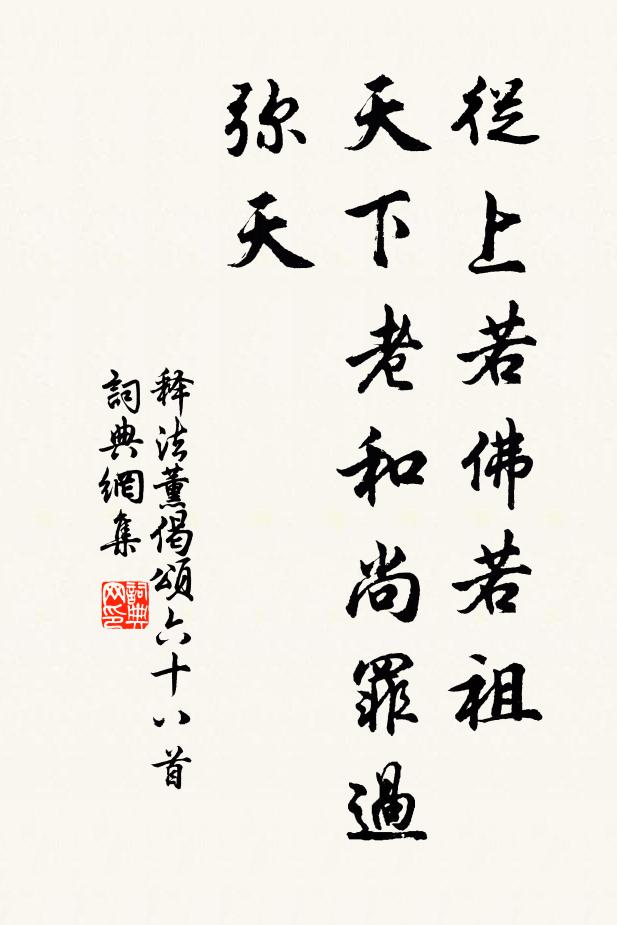 從上若佛若祖
天下老和尚罪過
弥天
释法薰偈頌六十八首
詞典網集
詞典网印